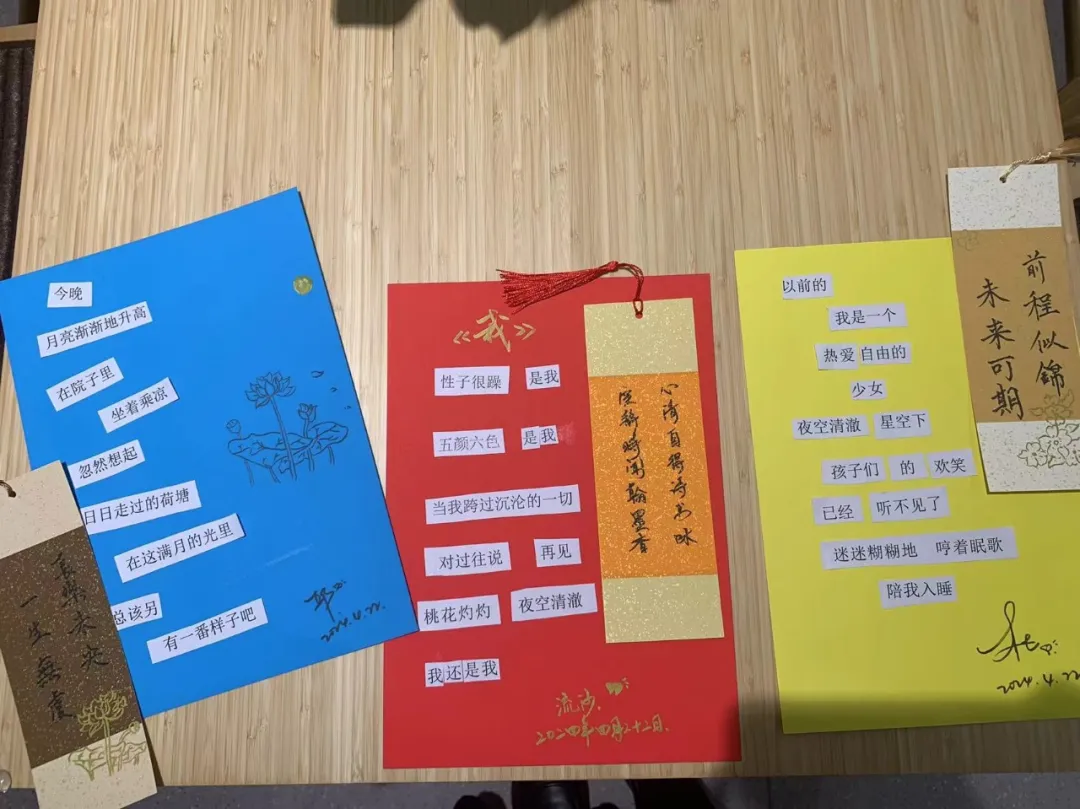 今晚
月亮渐渐地升高
在院子里
坐着乘凉
忽然想起
日日走过的荷塘
在这满月的光里
总该另
有一番样子吧
2024.4.22.
長樂未央
一生無虞
《我》
性子很躁 是我
五颜六色 是我
当我跨过沉沦的一切
对过往说 再见
桃花灼灼 夜空清澈
我还是我
流沙
二〇二四年四月二十二日.
心清自得诗书味
院静時闻翰墨香
以前的
我是一个
热爱 自由的
少女
夜空清澈 星空下
孩子们 的 欢笑
已经 听不见了
迷迷糊糊地 哼着眠歌
陪我入睡
2024.4.22
前程似錦
未来可期